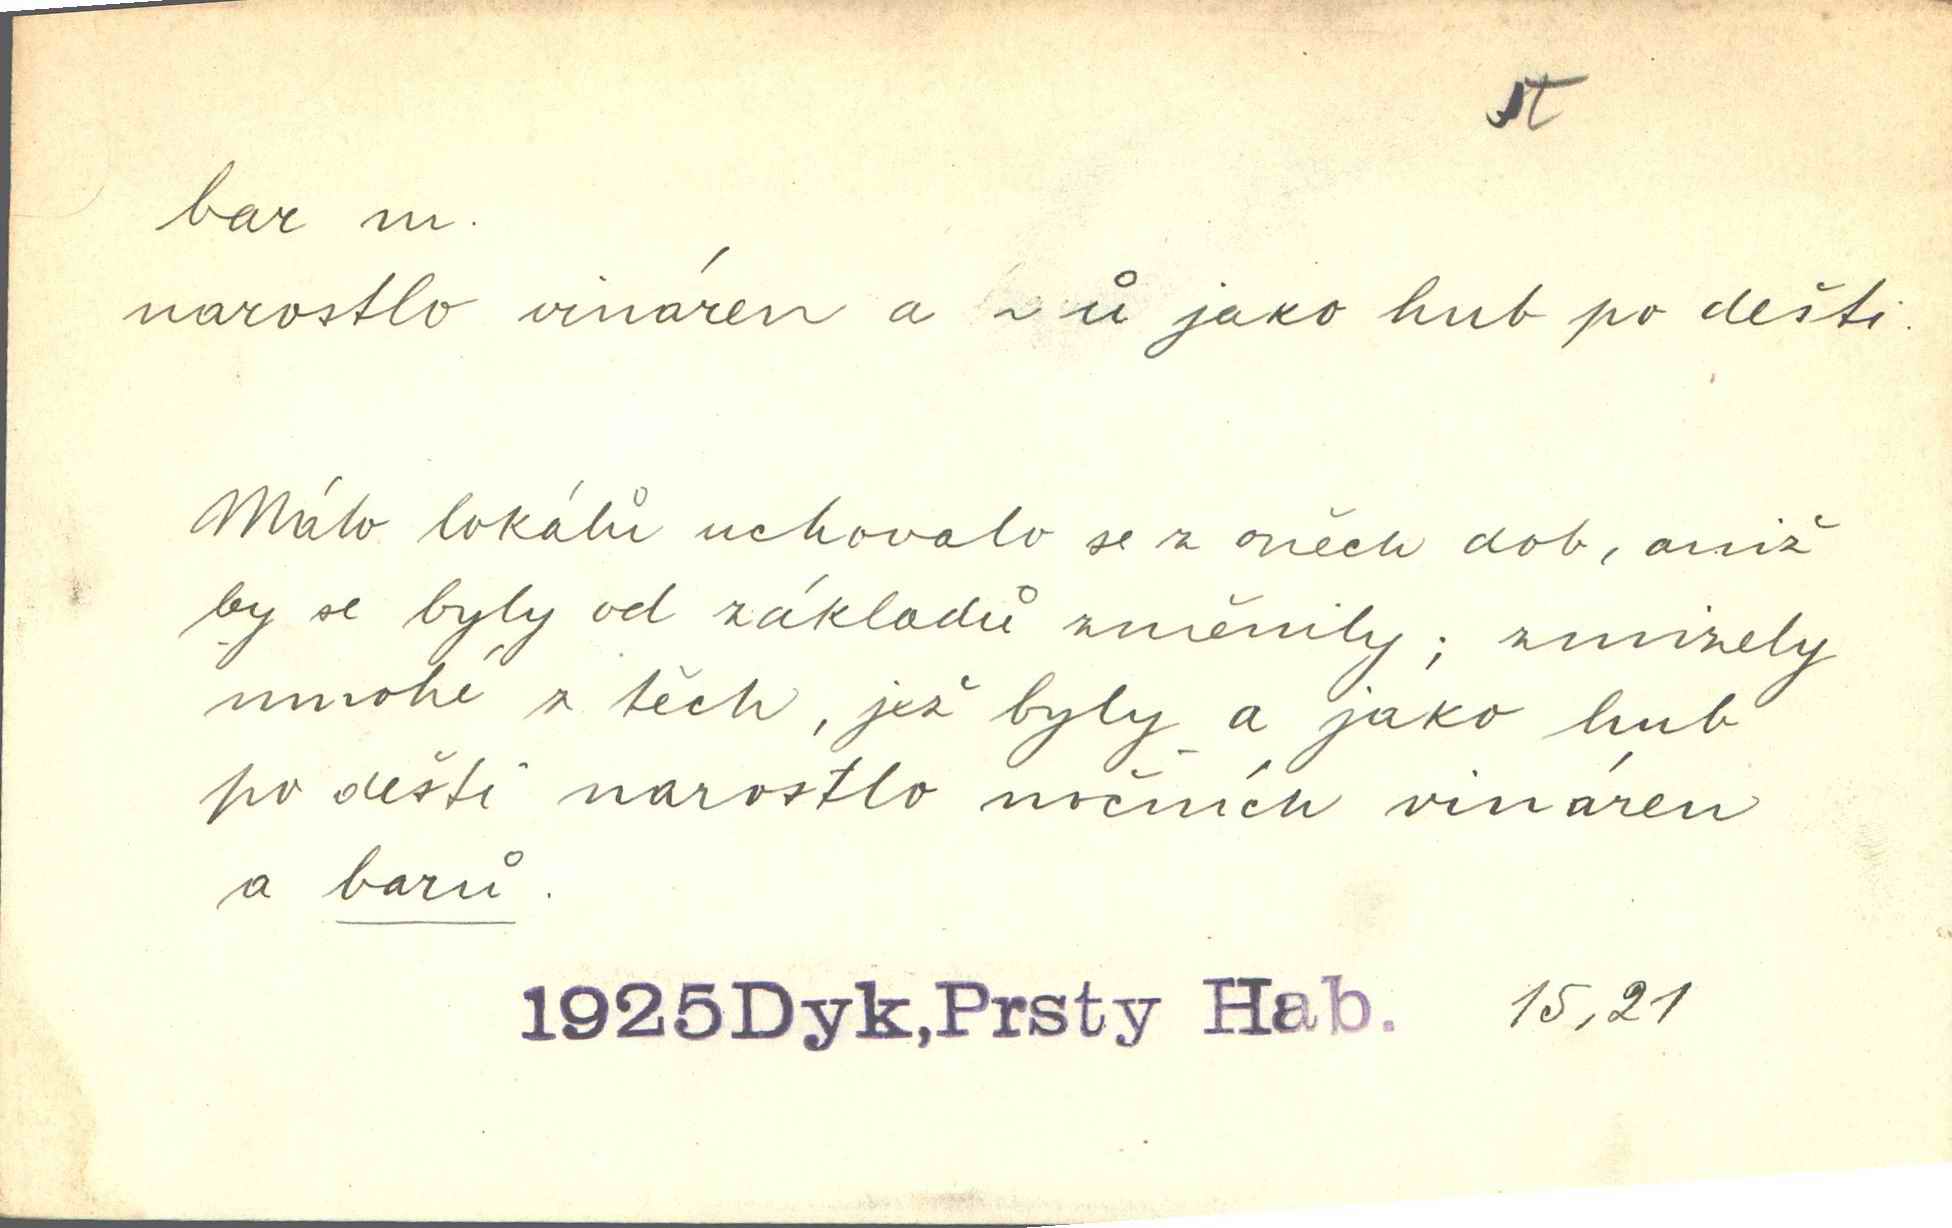 st
bar m.
narostlo vináren a ~ů jako hub po dešti.
Málo lokálů uchovalo se z oněch dob, aniž
by se byly od základů změnily; zmizely
mnohé z těch, jež byly a jako hub
po dešti narostlo nočních vináren
a barů.
1925Dyk,Prsty Hab. 15,21